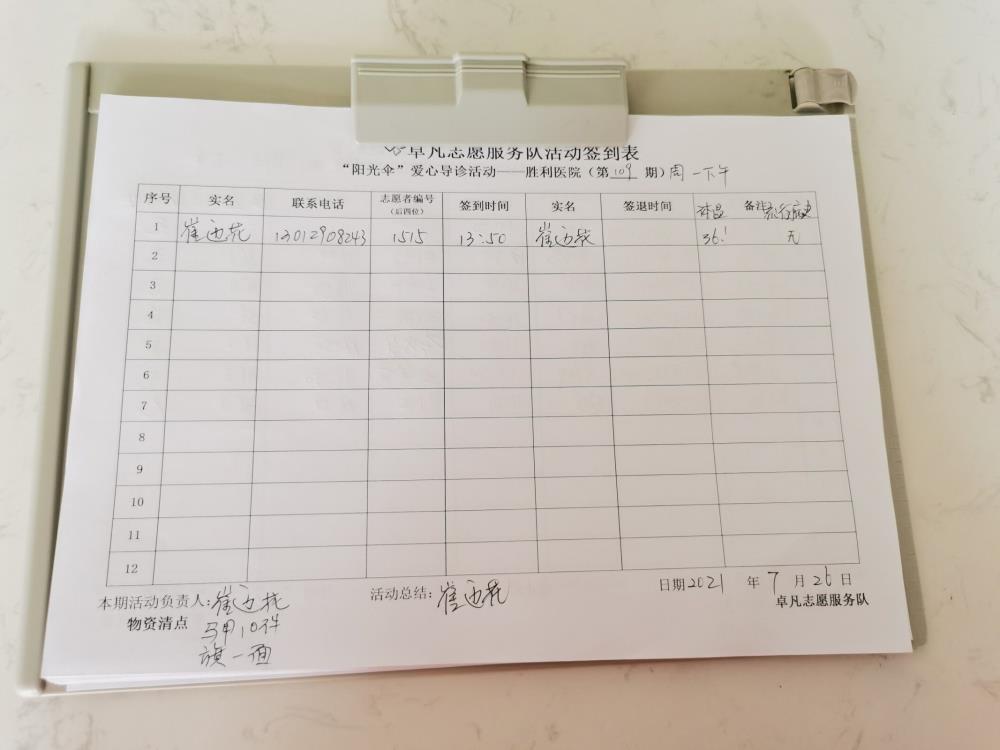 卓凡志愿服务队活动签到表
“阳光伞”爱心导诊活动——胜利医院（第109期）周一下午
序号 实名 联系电话 志愿者编号（后四位） 签到时间 实名 签退时间 体温 备注 流行病史
1 崔 13012908243 1515 13:50 崔 36.1 无
2
3
4
5
6
7
8
9
10
11
12
本期活动负责人:崔 活动总结:崔 日期2021年7月26日
物资清点 马甲10件 卓凡志愿服务队
旗一面